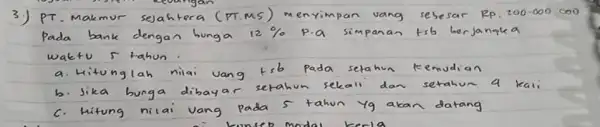 3.) PT. Makmur Sejahtera (PT.MS) menyimpan uang sebesar Rp. 200.000.000
Pada bank dengan bunga 12% p.a simpanan tsb berjangka
waktu 5 tahun.
a. Hitunglah nilai uang tsb pada setahun kemudian
b. Jika bunga dibayar setahun sekali dan setahun 4 kali
c. Hitung nilai uang pada 5 tahun yg akan datang
konsep modal kerja